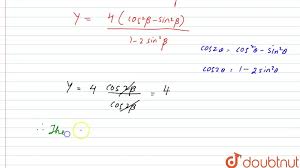 Y = 4 (cos²β - sin²β) / 1 - 2 sin²β
cos2θ = cos²θ - sin²θ
cos2θ = 1 - 2 sin²θ
Y = 4 cos2β / cos2β = 4
∴ The
doubtnut